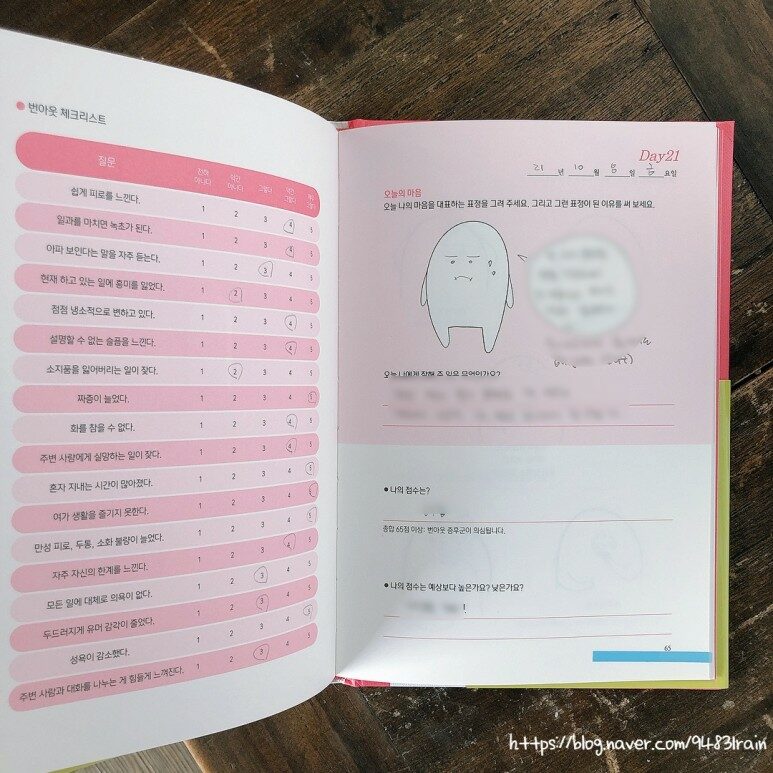 번아웃 체크리스트
질문 전혀 아니다 약간 아니다 그렇다
쉽게 피로를 느낀다. 1 2 3 4 5
일과를 마치면 녹초가 된다. 1 2 3 4 5
아파 보인다는 말을 자주 듣는다. 1 2 3 4 5
현재 하고 있는 일에 흥미를 잃었다. 1 2 3 4 5
점점 냉소적으로 변하고 있다. 1 2 3 4 5
설명할 수 없는 슬픔을 느낀다. 1 2 3 4 5
소지품을 잃어버리는 일이 잦다. 1 2 3 4 5
짜증이 늘었다. 1 2 3 4 5
화를 참을 수 없다. 1 2 3 4 5
주변 사람에게 실망하는 일이 잦다. 1 2 3 4 5
혼자 지내는 시간이 많아졌다. 1 2 3 4 5
여가 생활을 즐기지 못한다. 1 2 3 4 5
만성 피로, 두통, 소화 불량이 늘었다. 1 2 3 4 5
자주 자신의 한계를 느낀다. 1 2 3 4 5
모든 일에 대체로 의욕이 없다. 1 2 3 4 5
두드러지게 유머 감각이 줄었다. 1 2 3 4 5
성욕이 감소했다. 1 2 3 4 5
주변 사람과 대화를 나누는 게 힘들게 느껴진다. 1 2 3 4 5
Day21
21 년 10 월 일 금 요일
오늘의 마음
오늘 나의 마음을 대표하는 표정을 그려 주세요. 그리고 그런 표정이 된 이유를 써 보세요.
오늘 나에게 잘해 준 일은 무엇인가요?
나의 점수는?
종합 65점 이상: 번아웃 증후군이 의심됩니다.
나의 점수는 예상보다 높은가요? 낮은가요?
!
65
https://blog.naver.com/9483lrain